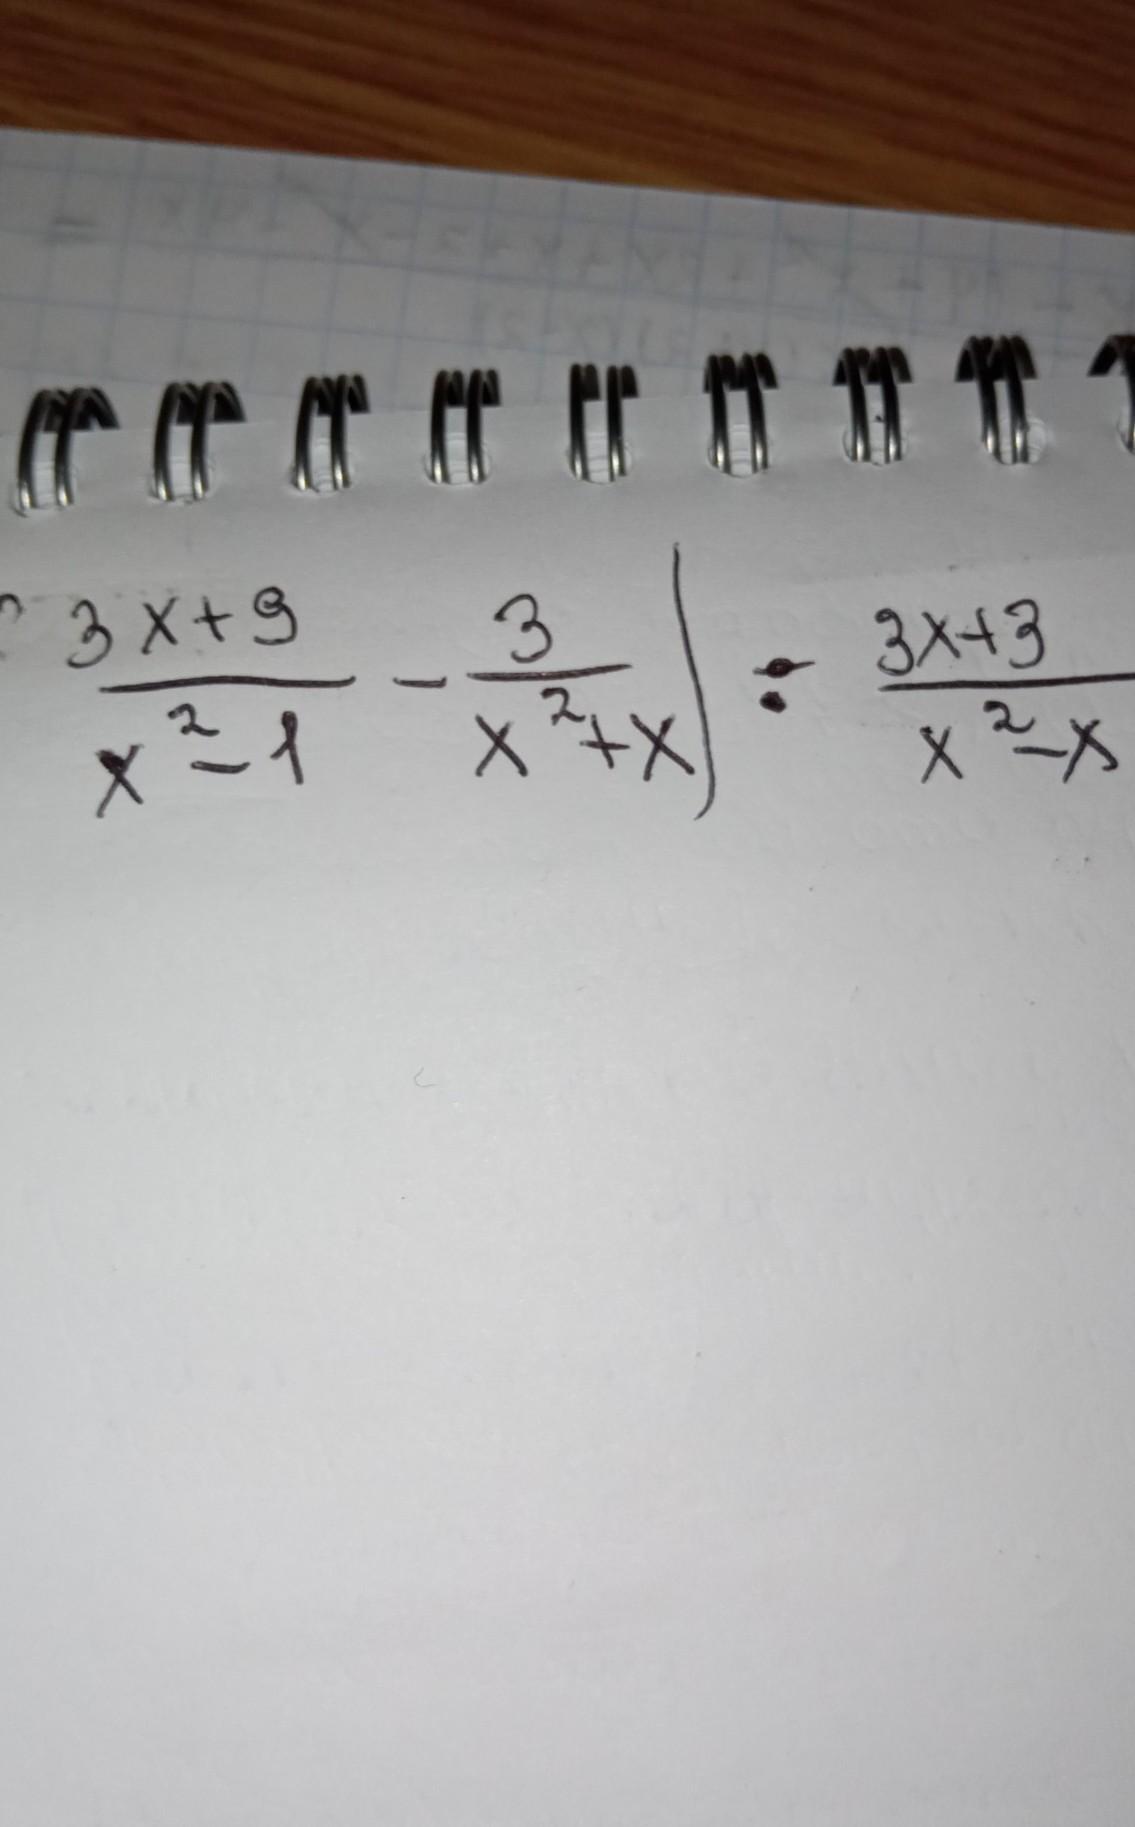 3x+9 / x²-1 - 3 / x²+x ) ÷ 3x+3 / x²-x